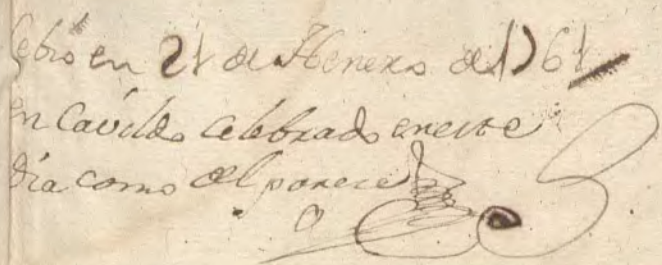 lebró en 21 de Henero de 1761
en Cavildo Celebrado en este
dia como del parece